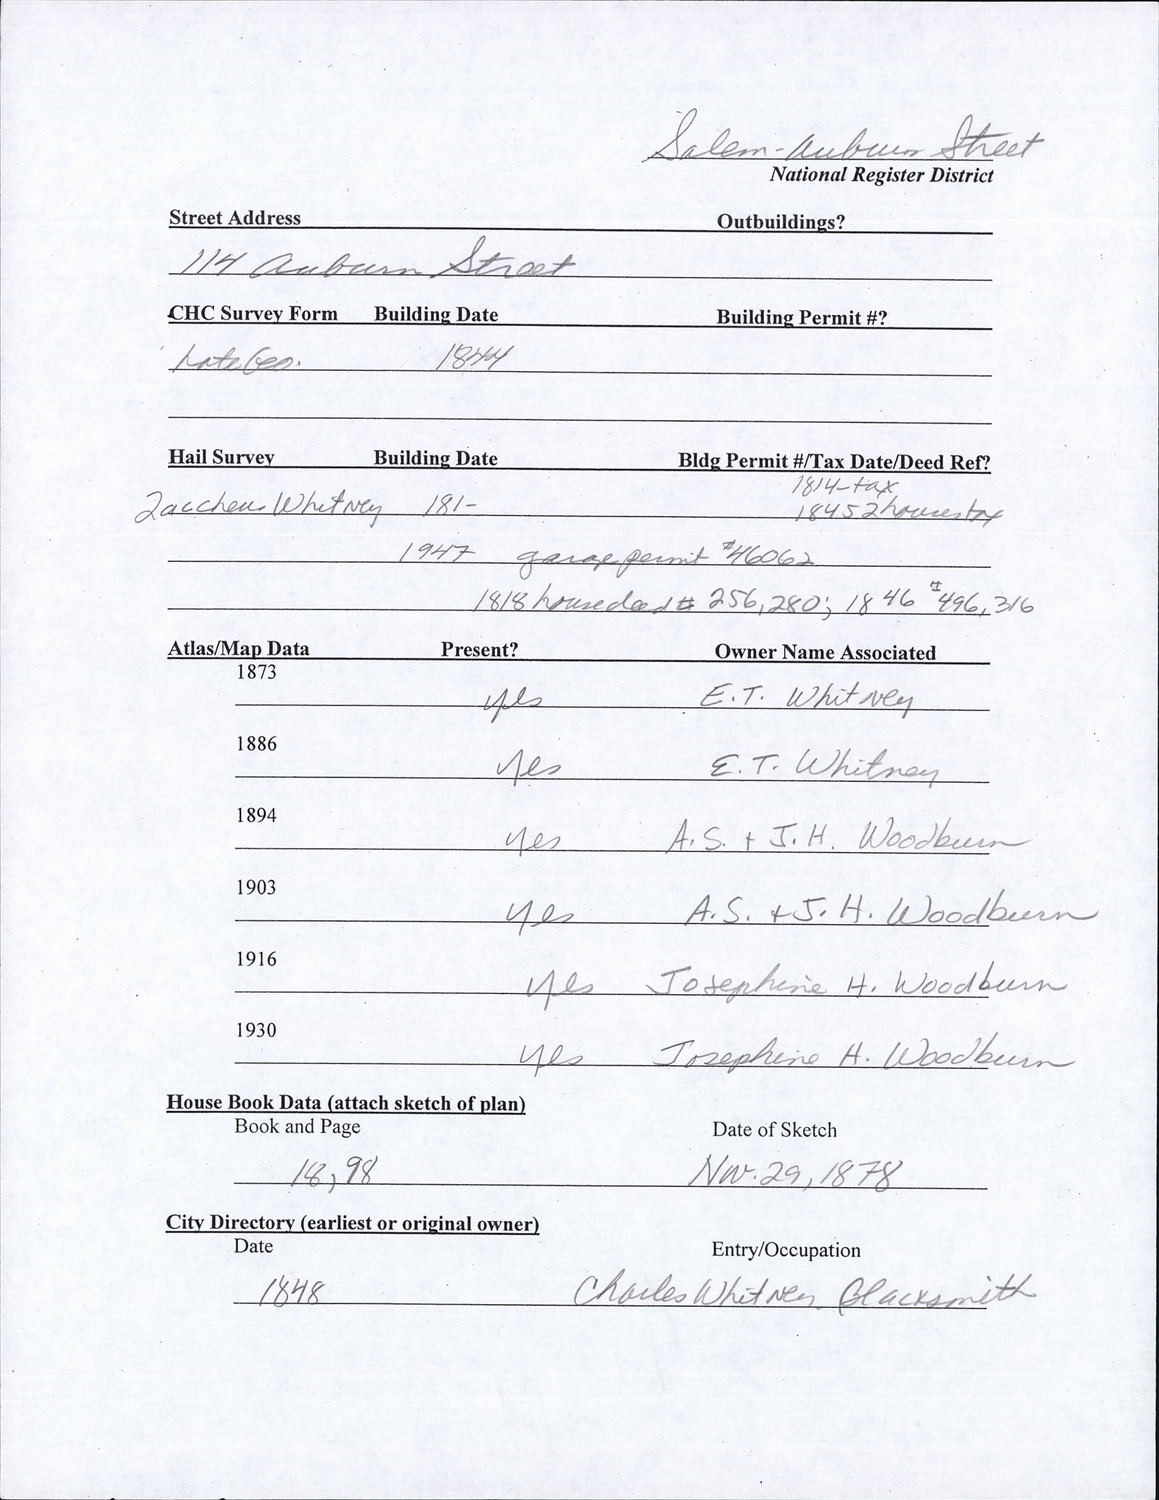 Salem-Auburn Street
National Register District
Street Address Outbuildings?
114 Auburn Street
CHC Survey Form Building Date Building Permit #?
Late Geo. 1844
Hail Survey Building Date Bldg Permit #/Tax Date/Deed Ref?
1814-tax
Zaccheus Whitney 181- 1845 2 houses tax
1947 garage permit #46062
1818 house deed # 256,280; 1846 #496,316
Atlas/Map Data Present? Owner Name Associated
1873
yes E.T. Whitney
1886
yes E.T. Whitney
1894
yes A.S. + J.H. Woodburn
1903
yes A.S. + J.H. Woodburn
1916
yes Josephine H. Woodburn
1930
yes Josephine H. Woodburn
House Book Data (attach sketch of plan)
Book and Page Date of Sketch
18,98 Nov. 29, 1878
City Directory (earliest or original owner)
Date Entry/Occupation
1848 Charles Whitney Blacksmith